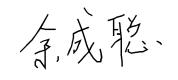 余成聪